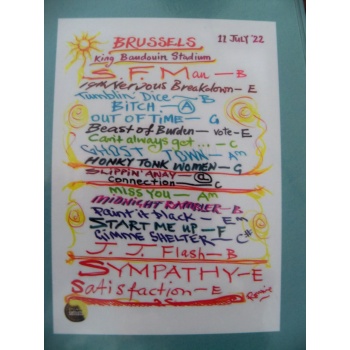 BRUSSELS 11 JULY '22
King Baudouin Stadium
S.F.Man - B
19th Nervous Breakdown - E
Tumblin' Dice - B
BITCH. - A
OUT OF TIME - G
Beast of Burden - VOTE - E
Can't always get ... - C
GHOST TOWN - Am
HONKY TONK WOMEN - G
SLIPPIN' AWAY - A
Connection - C
MISS YOU - Am
MIDNIGHT RAMBLER - B
Paint it black - Em
START ME UP - F
GIMME SHELTER - C#
J. J. Flash - B
SYMPATHY - E
Satisfaction - E